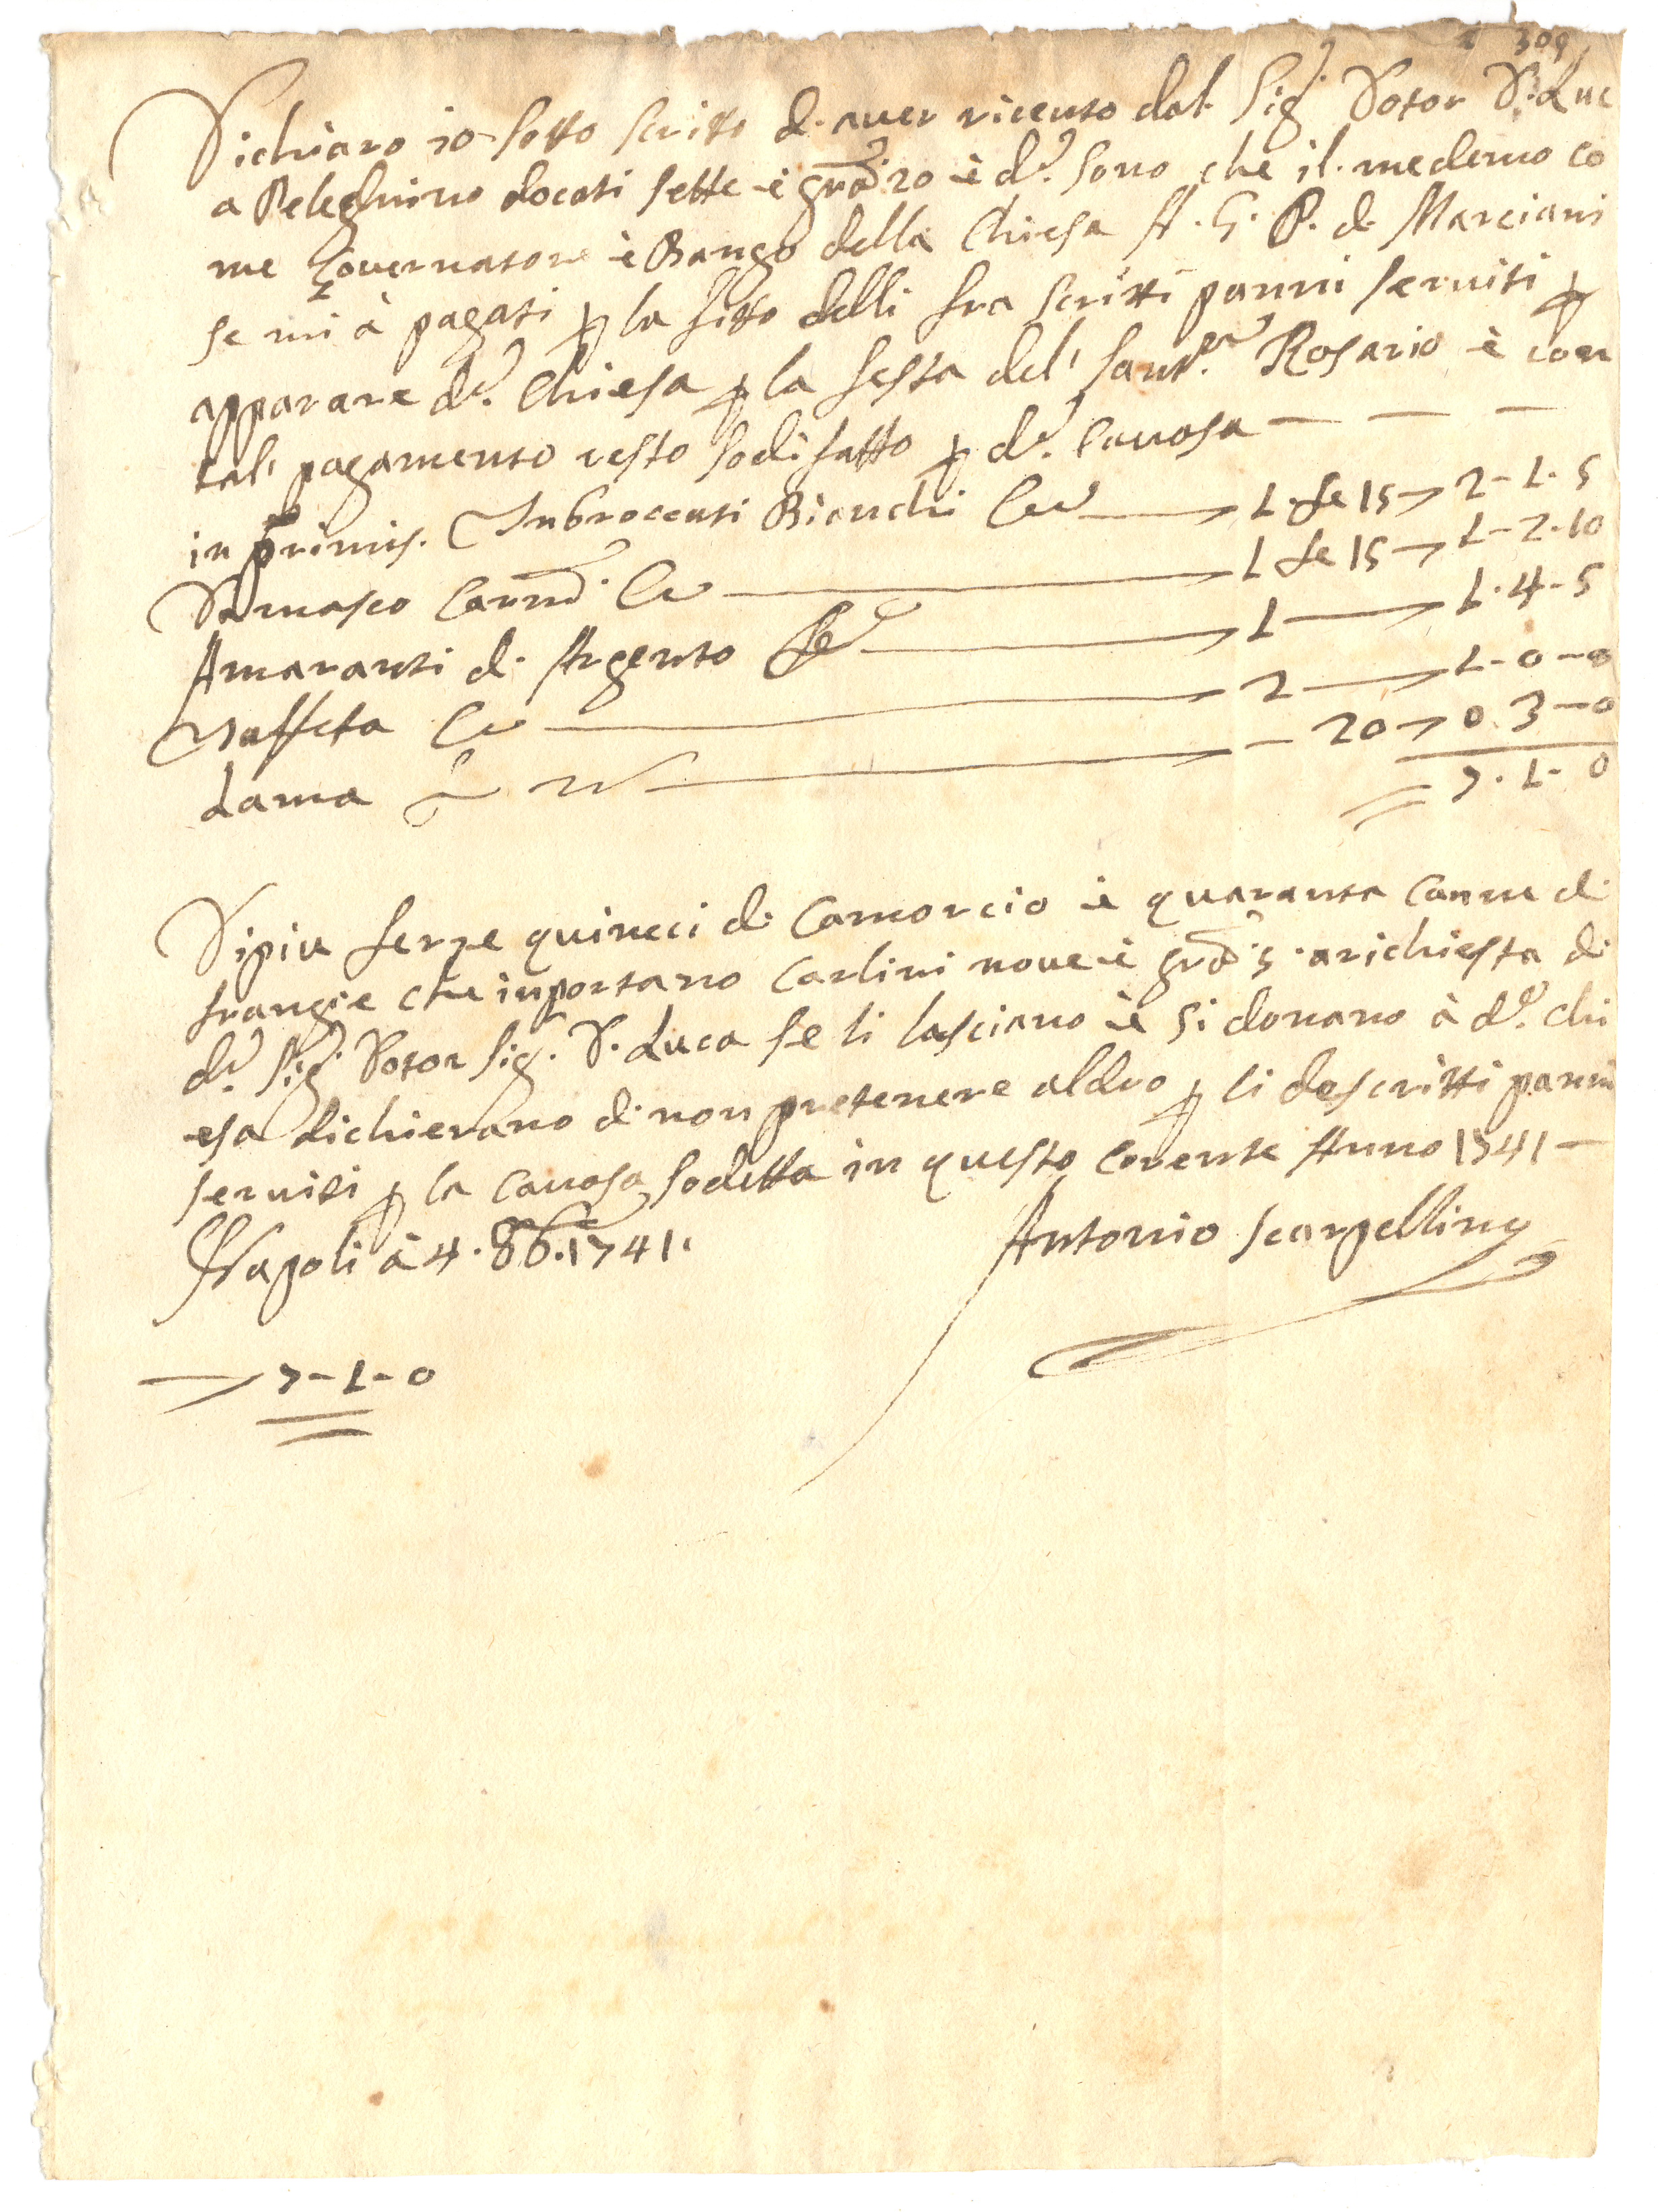 309
Dichiaro io sotto scritto d. aver riceuto dal. Sig.r Dotor D. Luc
a Peleghino docati sette è gra: 20 è d.i sono che il. medemo co
me Governatore è Bango della Chiesa A. G. P. di Marciani
se mi à pagati p la fitto delli fra scritti panni seruiti p
apparare d.a Chiesa p la festa del' Sant.mo Rosario è con
tal' pagamento resto sodisfatto p d.a Cauosa — — —
in primis. Inbroccati Bianchi 1 fe 15 2-1-5
Damasco 1 fe 15 1-2-10
Amaranti d. Argento 1 1-4-5
Taffeta 2 1-0-0
Lama 20 0 3-0
7-1-0
Dipiu ferze quineci di Camorcio è quaranta Canne di
frangie che inportano Carlini noue è gra: 5. arichiesta di
d.o Sig.r Dotor Sig.r D. Luca se li lasciano è si donano à d.a chi
esa dichierano di non pretenere aldro p li descritti panni
seruiti p la Cauosa sodetta in questo Corente Anno 1741 —
Napoli à 4. 8b. 1741.
Antonio Scarpellino
7-1-0